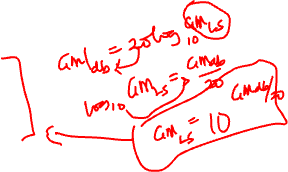 GM_db = 20 log_10 GM_LS
log_10 GM_LS = GM_db/20
GM_LS = 10^(GM_db/20)